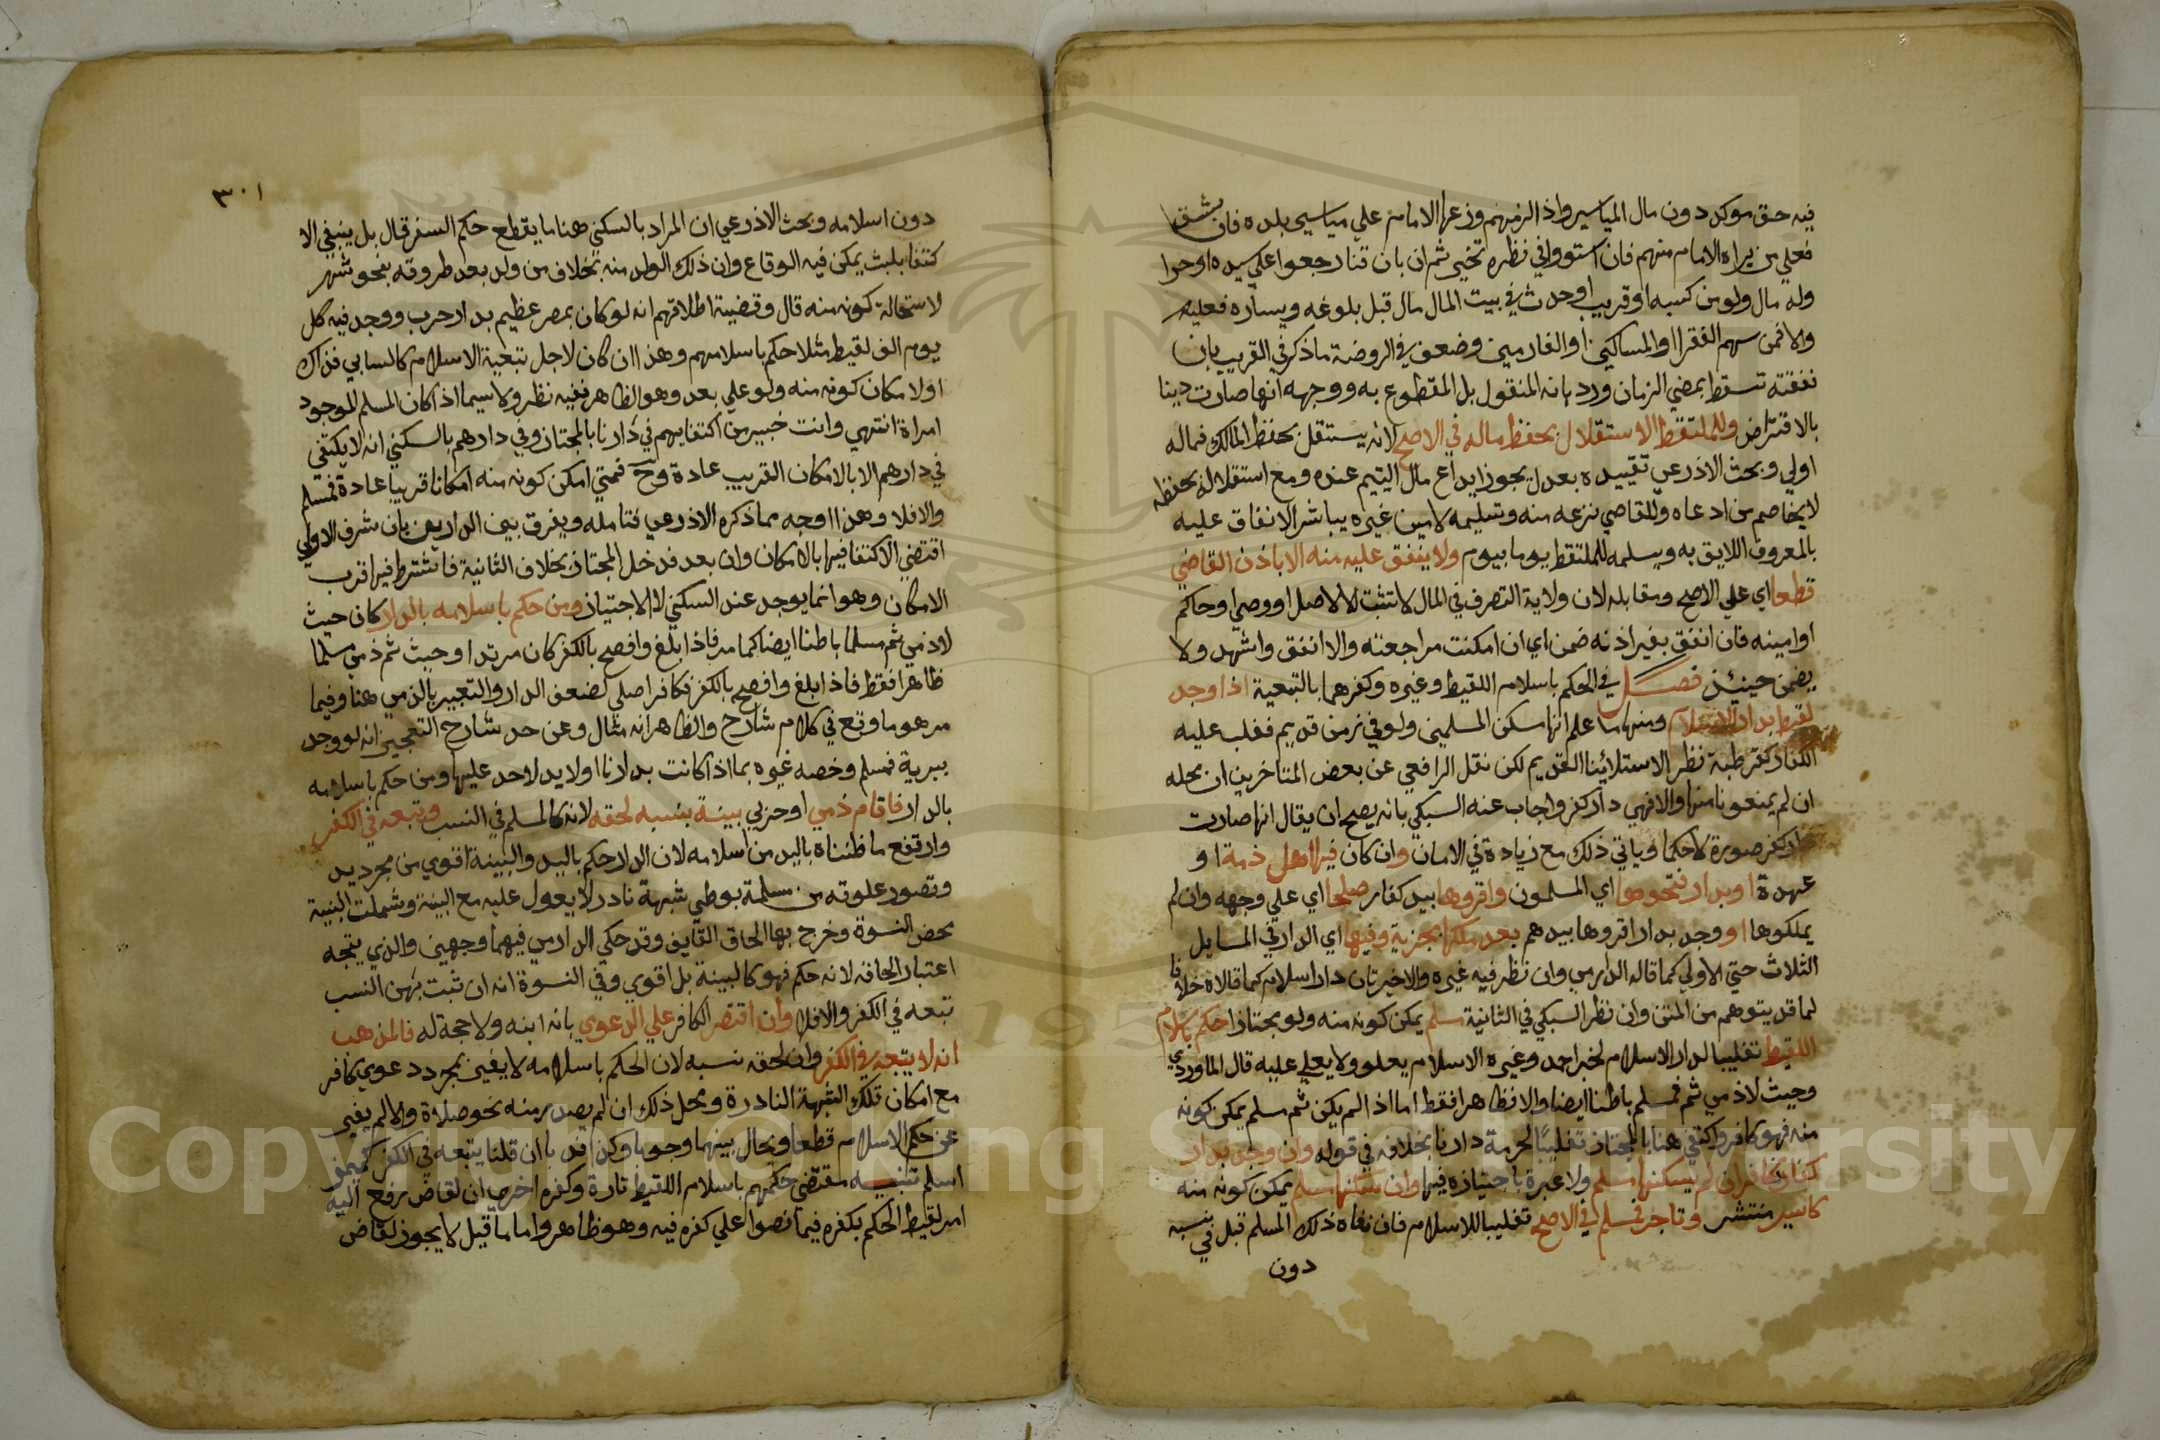 فيه حق موكد دون مال المياسير واذا لزمهم وزعها الامام علي مياسير بلده فان شق
فعلي من يراه الامام منهم فان استووا في نظره تخير ثم ان بان قنا رجعوا علي سيده او حرا
وله مال ولو من كسبه او قريب او حدث في بيت المال مال قبل بلوغه ويساره فعليه
والا فمن سهم الفقرا او المساكين او الغارمين وضعف في الروضة ما ذكر في القريب بان
نفقته تسقط بمضي الزمان ورد بانه المنقول بل المقطوع به ووجهه انها صارت دينا
بالاقتراض وللملتقط الاستقلال بحفظ ماله في الاصح لانه يستقل بحفظ المالك فماله
اولي وبحث الاذرعي تقييده بعدل يجوز ايداع مال اليتيم عنده ومع استقلاله بحفظه
لا يخاصم من ادعاه وللقاضي نزعه منه وتسليمه لامين غيره يباشر الانفاق عليه
بالمعروف اللايق به ويسلمه للملتقط يوما بيوم ولا ينفق عليه منه الا باذن القاضي
قطعا اي علي الاصح ومقابله لان ولاية التصرف في المال لا تثبت الا لاصل او وصي او حاكم
او امينه فان انفق بغير اذنه ضمن اي ان امكنت مراجعته والا انفق واشهد ولا
يضمن حينئذ فصل في الحكم باسلام اللقيط وغيره وكفرهما بالتبعية اذا وجد
لقيط بدار الاسلام ومنها ما علم انها مسكن المسلمين ولو في زمن قديم فغلب عليه
الكفار كقرطبة نظرا لاستيلائنا القديم لكن نقل الرافعي عن بعض المتاخرين ان محله
ان لم يمنعونا منها والا فهي دار كفر واجاب عنه السبكي بانه يصح ان يقال انها صارت
دار كفر صورة لا حكما وياتي ذلك مع زيادة في الامان وان كان فيها اهل ذمة او
عهدة او بدار فتحوها اي المسلمون واقروها بيد كفار صلحا اي علي وجهه وان لم
يملكوها او وجد بدار اقروها بيدهم بعد ملكها بجزية وفيها اي الدار في المسايل
الثلاث حتي الاولي كما قاله الدارمي وان نظر فيه غيره والاخيرتان دار اسلام كما قالاه خلافا
لما قد يتوهم من المتن وان نظر السبكي في الثانية مسلم يمكن كونه منه ولو مجتازا حكم باسلام
اللقيط تغليبا لدار الاسلام لخبر احمد وغيره الاسلام يعلو ولا يعلي عليه قال الماوردي
وحيث لا ذمي ثم فمسلم باطنا ايضا والا فظاهرا فقط اما اذا لم يكن ثم مسلم يمكن كونه
منه فهو كافر واكتفي هنا بالمجتاز تغليبا لحرمة دارنا بخلافه في قوله وان وجد بدار
كفار فكافر ان لم يسكنها مسلم ولا عبرة باجتيازه فيها وان سكنها مسلم يمكن كونه منه
كاسير منتشر وتاجر فمسلم في الاصح تغليبا للاسلام فان نفاه ذلك المسلم قبل في نسبه
دون
٣٠١
دون اسلامه وبحث الاذرعي ان المراد بالسكني هنا ما يقطع حكم السفر قال بل ينبغي الا
كتفا بلبث يمكن فيه الوقاع وان ذلك الولد منه بخلاف من ولد بعد طروقه بنحو شهر
لاستحالة كونه منه قال وقضية اطلاقهم انه لو كان بمصر عظيم بدار حرب ووجد فيه كل
يوم الف لقيط مثلا حكم باسلامهم وهذا ان كان لاجل تبعية الاسلام كالسابي فذاك
او لامكان كونه منه ولو علي بعد وهو الظاهر ففيه نظر ولا سيما اذا كان المسلم الموجود
امراة انتهي وانت خبير من اكتفايهم في دارنا بالمجتاز وفي دارهم بالسكني انه لا يكتفي
في دارهم الا بالامكان القريب عادة وح فمتي امكن كونه منه امكانا قريبا عادة فمسلم
والا فلا وهذا اوجه مما ذكره الاذرعي فتامله ويفرق بين الدارين بان شرف الاولي
اقتضي الاكتفا فيها بالامكان وان بعد فدخل المجتاز بخلاف الثانية فاشترط فيها قرب
الامكان وهو انما يوجد عند السكني لا الاجتياز ومن حكم باسلامه بالدار كان حيث
لا ذمي ثم مسلما باطنا ايضا كما مر فاذا بلغ وافصح بالكفر كان مرتدا وحيث ثم ذمي مسلما
ظاهرا فقط فاذا بلغ وافصح بالكفر فكافر اصلي لضعف الدار والتعبير بالذمي هنا وفيما
مر هو ما وقع في كلام شارح والظاهر انه مثال وعن حد شارح التعجيز انه لو وجد
ببرية فمسلم وخصه غيره بما اذا كانت بدارنا او لا يد لاحد عليها ومن حكم باسلامه
بالدار فاقام ذمي او حربي بينة بنسبه لحقه لانه كالمسلم في النسب وتبعه في الكفر
وارتفع ما ظنناه باليد من اسلامه لان الدار حكم باليد والبينة اقوي من مجرد يد
وتصور علوقه من مسلمة بوطي شبهة نادر لا يعول عليه مع البينة وشملت البينة
محض النسوة وخرج بها الحاق القايف وقد حكي الدارمي فيهما وجهين والذي يتجه
اعتبار الحاقه لانه حكم فهو كالبينة بل اقوي وفي النسوة انه ان ثبت بهن النسب
تبعه في الكفر والا فلا وان اقتصر الكافر علي الدعوي بانه ابنه ولا حجة له فالمذهب
انه لا يتبعه في الكفر وان لحقه نسبه لان الحكم باسلامه لا يغير بمجرد دعوي كافر
مع امكان تلك الشبهة النادرة ومحل ذلك ان لم يصدر منه نحو صلاة والا لم يغير
عن حكم الاسلام قطعا ويحال بينهما وجوبا وكذا ندبا ان قلنا يتبعه في الكفر كمميز
اسلم تنبيه مقتضي حكمهم باسلام اللقيط تارة وكفره اخري ان لقاض رفع اليه
امر لقيط الحكم بكفره فيما نصوا علي كفره فيه وهو ظاهر واما ما قيل لا يجوز لقاض